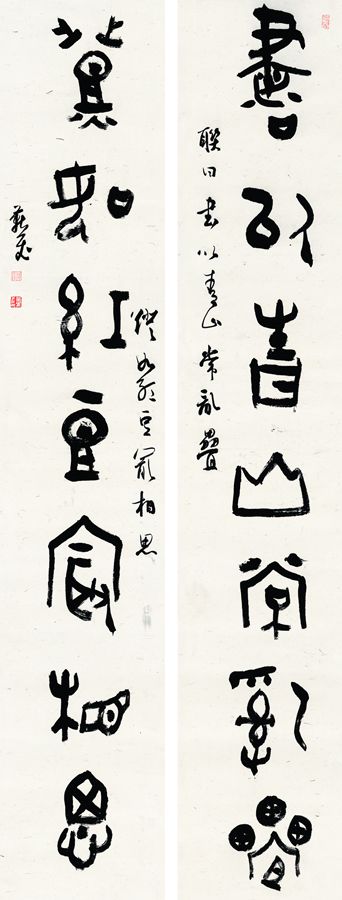 書似青山常亂疊
聯曰書似青山常亂疊
燈如紅豆最相思
燈如紅豆最相思